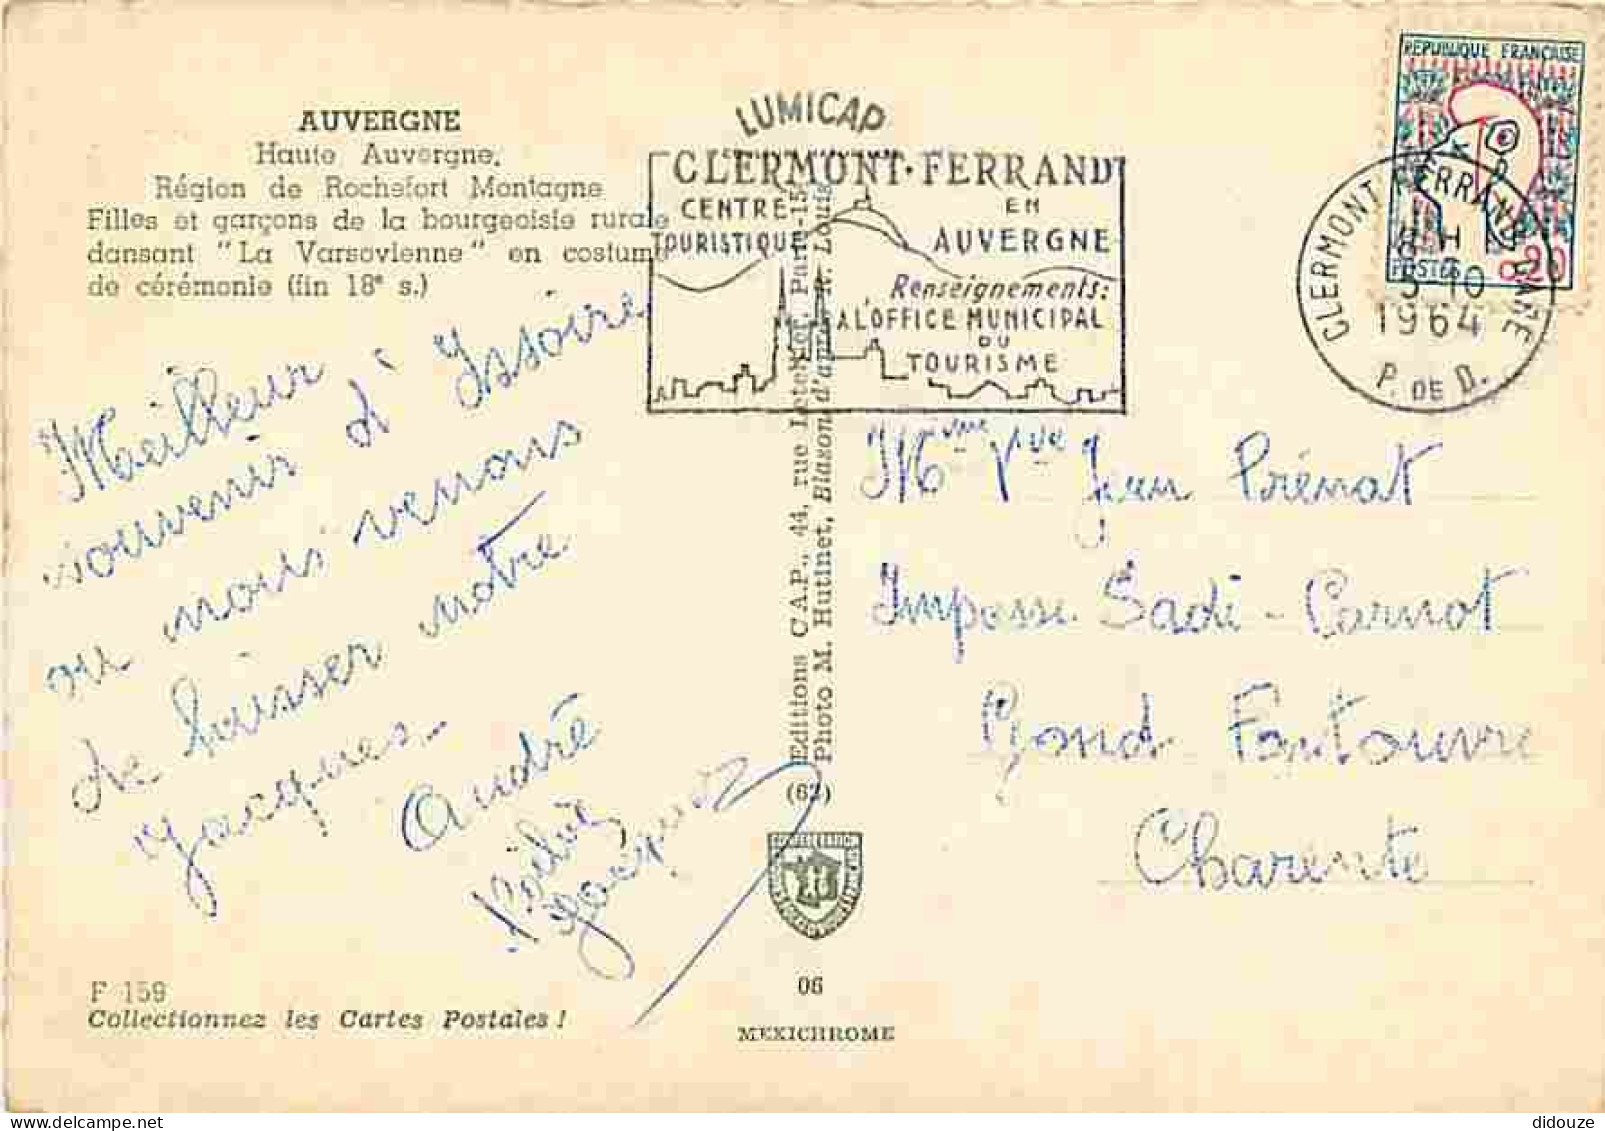 AUVERGNE
Haute Auvergne.
Région de Rochefort Montagne
Filles et garçons de la bourgeoisie rurale
dansant "La Varsovienne" en costume
de cérémonie (fin 18e s.)
LUMICAP
CLERMONT-FERRAND
CENTRE
TOURISTIQUE
EN
AUVERGNE
Renseignements:
A L'OFFICE MUNICIPAL
DU
TOURISME
REPUBLIQUE FRANÇAISE
POSTES 0,20
CLERMONT FERRAND GARE
1964
P. DE D.
Meilheur
souvenir d'Issoire
ou nous venons
de laisser notre
Jacques.
André
Jacques
Mme Vve Jean Prénat
Impasse Sadi-Carnot
Gond Fontouvre
Charente
Editions C.A.P., 44, rue Letellier, Paris-15e
Photo M. Hutinet, Blasons d'après R. Louis
(62)
06
MEXICHROME
F 159
Collectionnez les Cartes Postales !
didouze